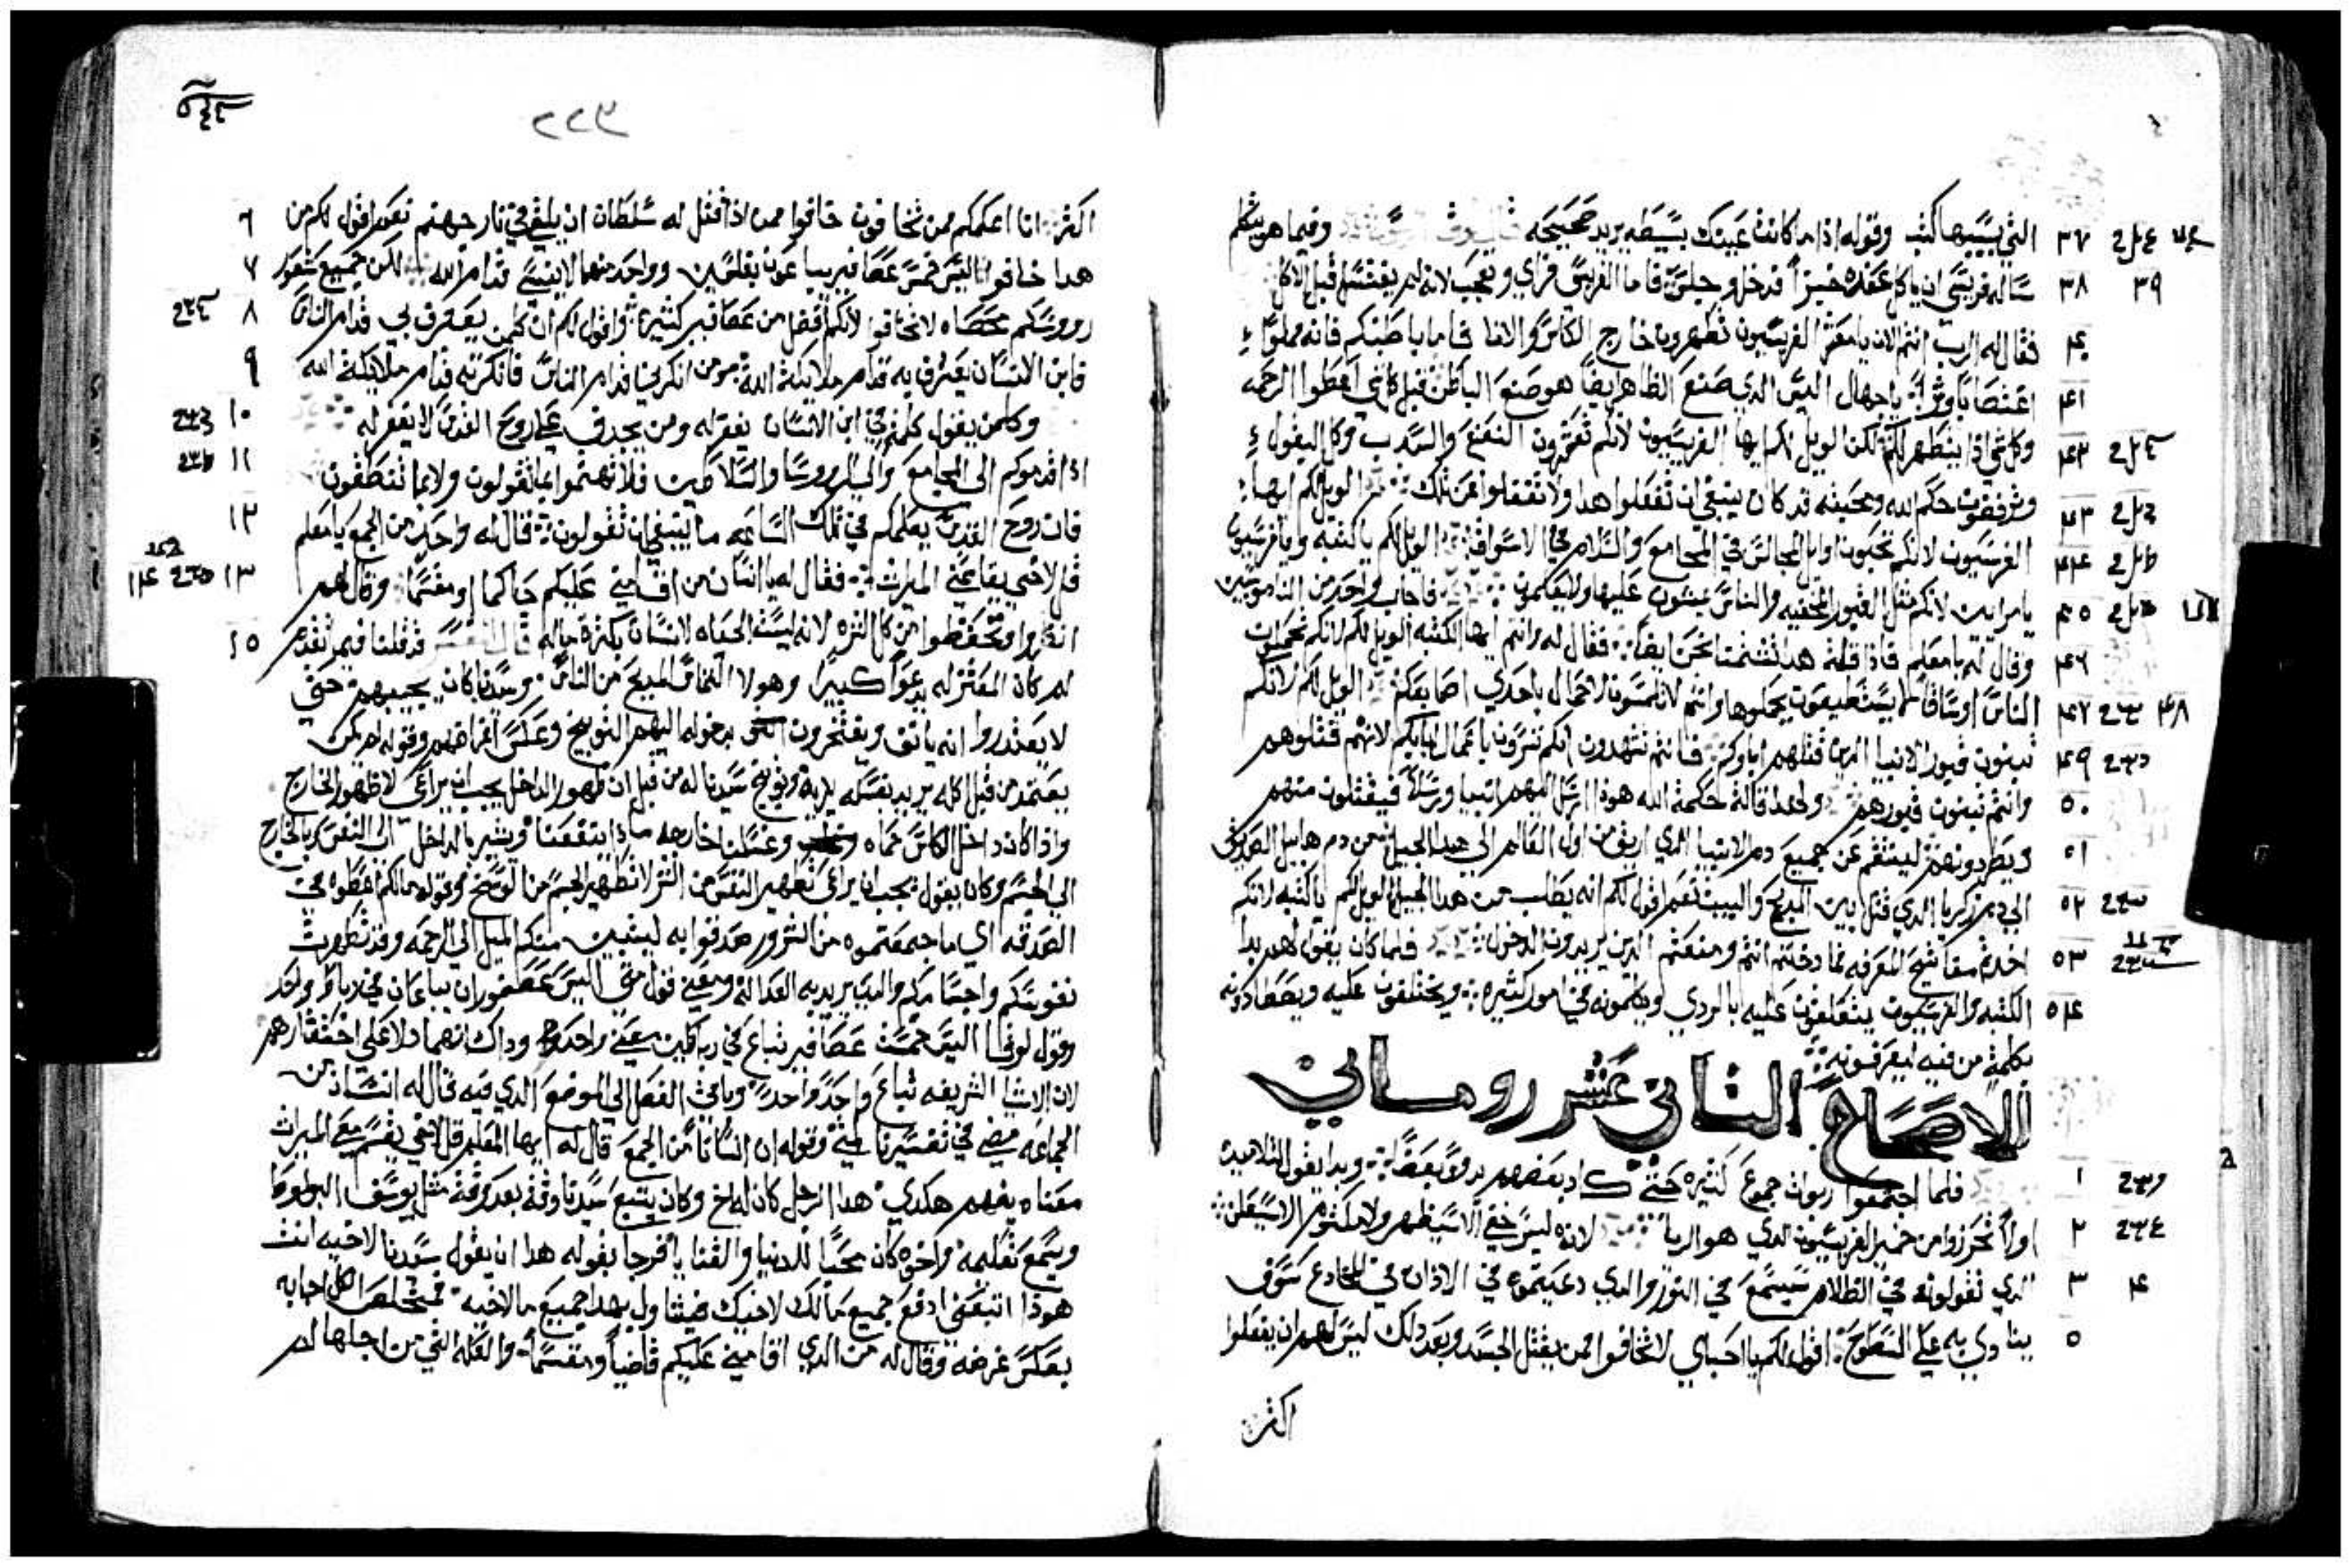 التي بسببها كتب وقوله اذا ما كانت عينك بسيطه يريد صحيحه وفيما هو يتكلم
ساله فريسي ان ياكل عنده خبزاً فدخل وجلس فاما الفريسي فراي وتعجب لانه لم يغتسل قبل الاكل
فقال له الرب انتم الان يا معشر الفريسيون تطهرون خارج الكاس والانا فاما باطنكم فانه مملوّ
اغتصابا وشراً يا جهال اليس الدي صنع الظاهر ايضاً هو صنع الباطن قبل كلشي اعطوا الرحمه
وكل شي اذا يتطهر لكم لكن الويل لكم ايها الفريسيون لانكم تعشرون النعنع والسدب وكل البقول
وترفضون حكم الله ومحبته قد كان ينبغي ان تفعلوا هدا ولا تغفلوا عن تلك الويل لكم ايها
الفريسيون لانكم تحبون اوايل المجالس في المجامع والسلام في الاسواق الويل لكم يا كتبه ويا فريسيون
يا مرايين لانكم مثل القبور المخفيه والناس يمشون عليها ولا يعلمون فاجاب واحد من الناموسيين
وقال له يا معلم فاذا قلت هدا تشتمنا نحن ايضاً فقال له وانتم ايها الكتبه الويل لكم لانكم تحملون
الناس اوساقا لا يستطيعون يحملوها وانتم لا تلمسون الاحمال باحدي اصابعكم الويل لكم لانكم
تبنون قبور الانبيا الدين قتلهم اباوكم فانتم تشهدون انكم تسرون باعمال ابايكم لانهم قتلوهم
وانتم تبنون قبورهم ولهدا قالت حكمة الله هوذا ارسل اليهم انبيا ورسلاً فيقتلون منهم
ويطردونهم لينتقم عن جميع دم الانبيا الدي اريق من اول العالم الي هدا الجيل من دم هابيل الصديق
الي دم زكريا الدي قتل بين المدبح والبيت نعم اقول لكم انه يطلب من هدا الجيل الويل لكم يا كتبه لانكم
اخدتم مفاتيح المعرفه فما دخلتم انتم ومنعتم الدين يريدون الدخول فلما كان يقول لهم بدا
الكتبه والفريسيون يتغلقون عليه بالردي ويكلمونه في امور كثيره ويختلفون عليه ويصطادونه
بكلمة من فيه ليقرفونه
الاصحاح الثاني عشر روماني
فلما اجتمعوا ربوات جموع كثيره حتي كاد بعضهم يدوّ بعضاً وبدا يقول لتلاميده
اولاً تحرزوا من خمير الفريسيون الدي هو الريا لانه ليس خفي الا سيظهر ولا مكتوم الا سيعلن
الدي تقولونه في الظلام سيسمع في النور والدي دعيتموه في الادان في المخادع سوف
ينادي به علي السطوح اقول لكم يا احباي لا تخافوا ممن يقتل الجسد وبعد دلك ليس لهم ان يفعلوا
اكثر
٢٢٦
اكثر انا اعلمكم ممن تخافون خافوا ممن اذا قتل له سلطان ان يلقي في نار جهنم نعم اقول لكم من
هدا خافوا اليس خمس عصافير يباعون بفلسين وواحد منهما لا ينسي قدام الله لكن جميع شعور
رووسكم محصاه لا تخافوا لانكم افضل من عصافير كثيرة واقول لكم ان كلمن يعترف بي قدام الناس
فابن الانسان يعترف به قدام ملايكة الله ومن انكرني قدام الناس فانكرته قدام ملايكة الله
وكلمن يقول كلمة في ابن الانسان يغفر له ومن يجدف علي روح القدس لا يغفر له
اذا قدموكم الي المجامع والي الرووسا والسلاطين فلا تهتموا بما تقولون ولا بما تنطقون
فان روح القدس يعلمكم في تلك الساعه ما ينبغي ان تقولون قال له واحد من الجمع يا معلم
قل لاخي يقاسمني الميراث فقال له يا انسان من اقامني عليكم حاكما او مقسماً وقال لهم
انظروا وتحفظوا من كل الشره لانه ليست الحياه لانسان بكثرة ماله قد قلنا فيما تقدم
لم كان المعشر له يدعوا كبيراً وهولا التماس المديح من الناس وسيدنا كان يجيبهم حتي
لا يعتدروا انه يانف ويفتخرون بدخوله اليهم التوبيخ وعكس اغراضهم وقوله لم يكن
يعتمد من قبل اكله يريد بغسله يديه وتوبيخ سيدنا له من قبل ان طهور الداخل يجب ان يراعي لا طهور الخارج
واذا كان داخل الكاس حماه وغسلنا خارجه ماذا ينفعنا ويشير بالداخل الي النفس وبالخارج
الي الجسم وكان يقول يجب ان يراعي تطهير النفس من الشر لا تطهير الجسم من الوسخ وقوله مالكم اعطوه في
الصدقه اي ما جمعتموه من الشرور صدقوا به ليتبين منكم الميل الي الرحمه وقد تطهرت
نفوسكم واجسامكم والدين يريد به العداله ومعني قول متي اليس عصفوران يباعان في رباط واحد
وقول لوقا اليس خمسة عصافير تباع في ربه كلين معني واحد وداك انهما دلا علي احتقارهم
لان الاشيا الشريفه تباع واحداً واحداً وباقي الفصل الي الموضع الدي فيه قال له انسان من
الجماعه مضي في تفسيرنا متي وقوله ان انسانا من الجمع قال له ايها المعلم قل لاخي يقسم معي الميراث
معناه يفهم هكدي هدا الرجل كان له اخ وكان يتبع سيدنا وقتا بعد وقت مثل يوسف البولوطا
ويسمع تعليمه واخوه كان محبا للدنيا والقنايا فرجا بقوله هدا ان يقول سيدنا لاخيه انت
هوذا اتبعني ادفع جميع مالك لاخيك جميع مال اخيه فمخلصنا الكل اجابه
بعكس غرضه وقال له من الدي اقامني عليكم قاضياً ومقسماً والعله التي من اجلها لم